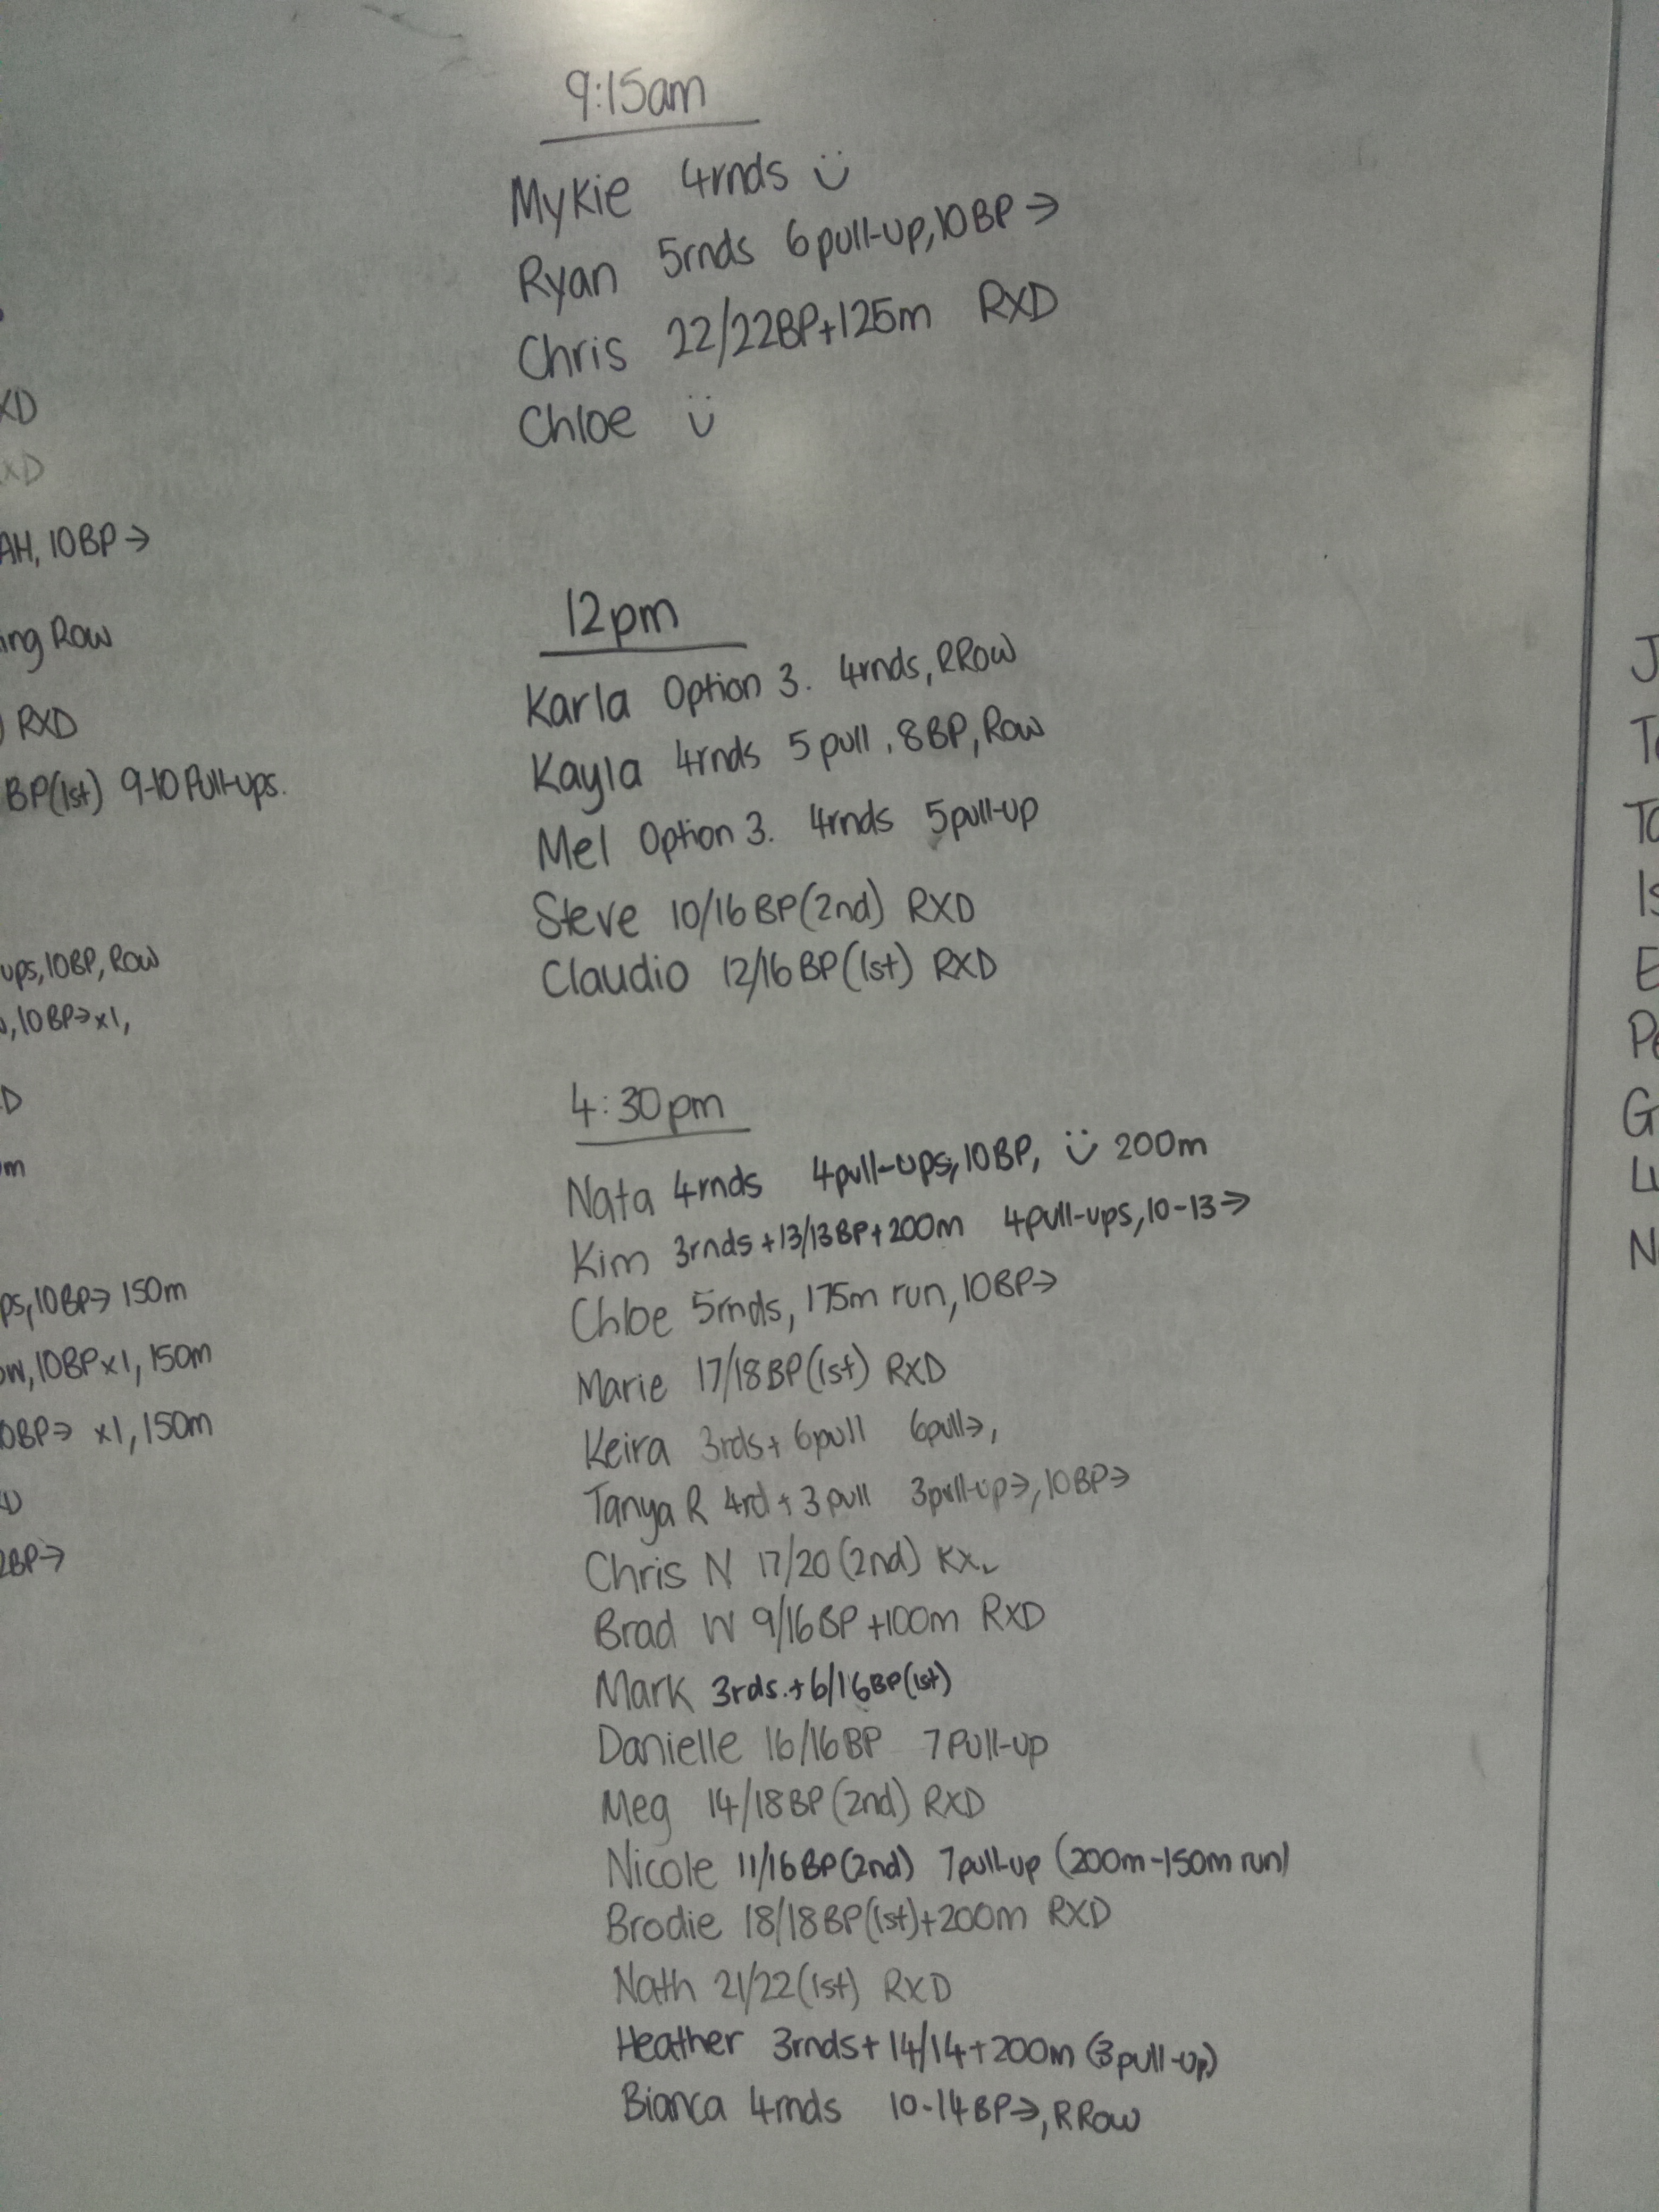 9:15am
Mykie 4rnds
Ryan 5rnds 6pull-up, 10BP →
Chris 22/22BP+125m RXD
Chloe
12pm
Karla Option 3. 4rnds, RRow
Kayla 4rnds 5pull, 8BP, Row
Mel Option 3. 4rnds 5pull-up
Steve 10/16BP(2nd) RXD
Claudio 12/16BP(1st) RXD
4:30pm
Nata 4rnds 4pull-ups, 10BP, 200m
Kim 3rnds+13/13BP+200m 4pull-ups, 10-13→
Chloe 5rnds, 175m run, 10BP→
Marie 17/18BP(1st) RXD
Keira 3rds+6pull 6pull→,
Tanya R 4rd+3pull 3pull-up→, 10BP→
Chris N 17/20(2nd)
Brad W 9/16BP+100m RXD
Mark 3rds.+6/16BP(1st)
Danielle 16/16BP 7Pull-up
Meg 14/18BP(2nd) RXD
Nicole 11/16BP(2nd) 7pull-up (200m-150m run)
Brodie 18/18BP(1st)+200m RXD
Nath 21/22(1st) RXD
Heather 3rnds+14/14+200m (3pull-up)
Bianca 4rnds 10-14BP→, RRow
XD
XD
AH, 10BP→
ing Row
RXD
BP(1st) 9-10Pull-ups.
ups, 10BP, Row
, 10BP→x1,
D
m
ps, 10BP→ 150m
ow, 10BPx1, 150m
0BP→ x1, 150m
D
2BP→